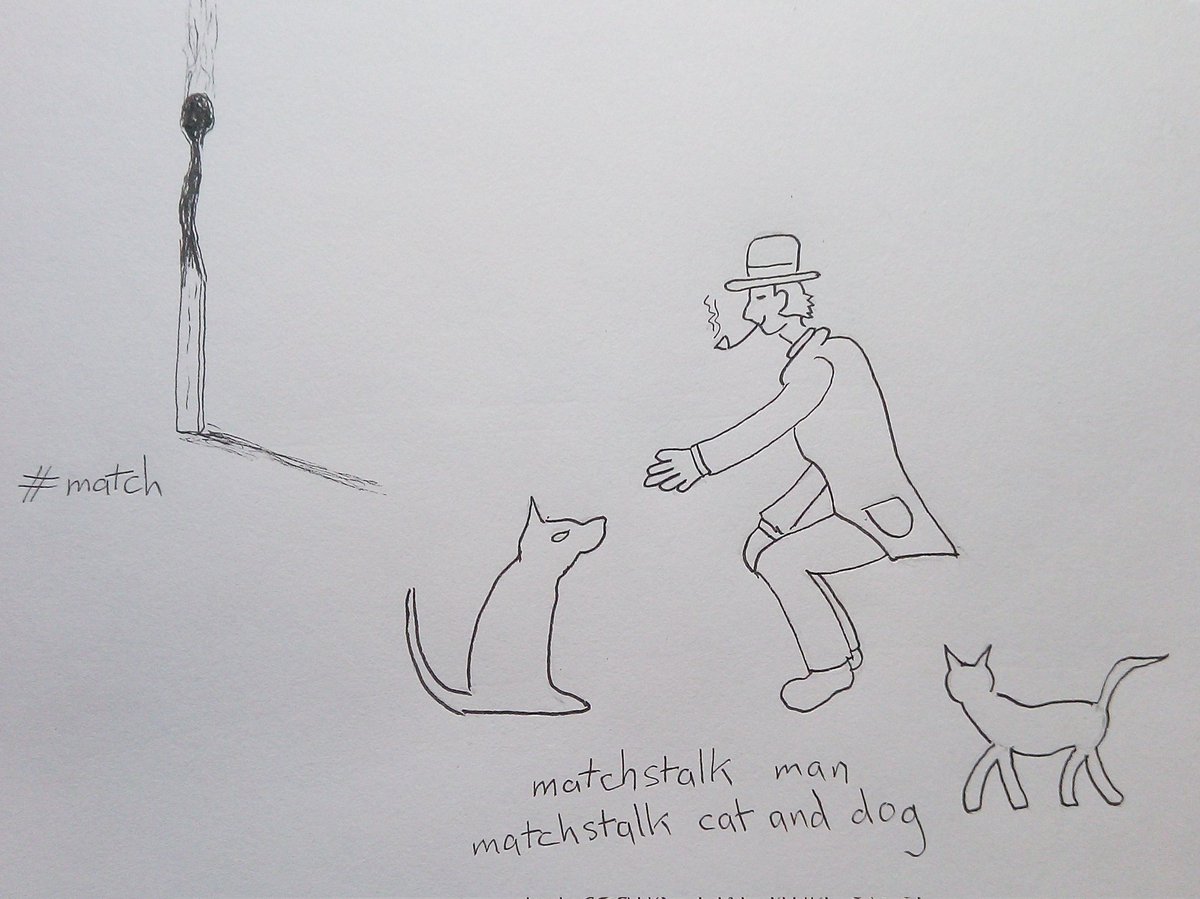 #match
matchstalk man
matchstalk cat and dog